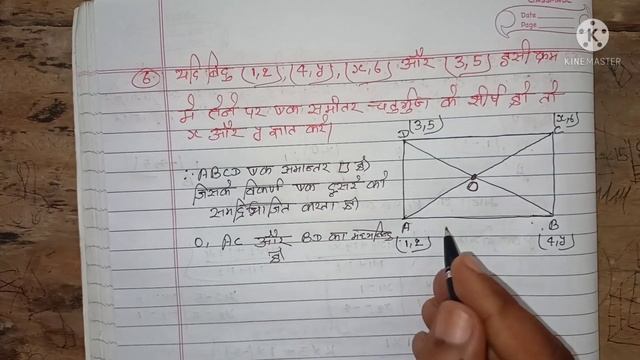 Date
Page
KINEMASTER
6 यदि बिंदु (1,2), (4,y), (x,6) और (3,5) इसी क्रम
में लेने पर एक समांतर चतुर्भुज के शीर्ष हो तो
x और y ज्ञात करो।
D (3,5)
(x,6) C
∴ ABCD एक समान्तर है
जिसके विकर्ण एक दूसरे को
समद्विभाजित करता है।
O
O, AC और BD का मध्यबिंदु
है
A (1,2)
B (4,y)